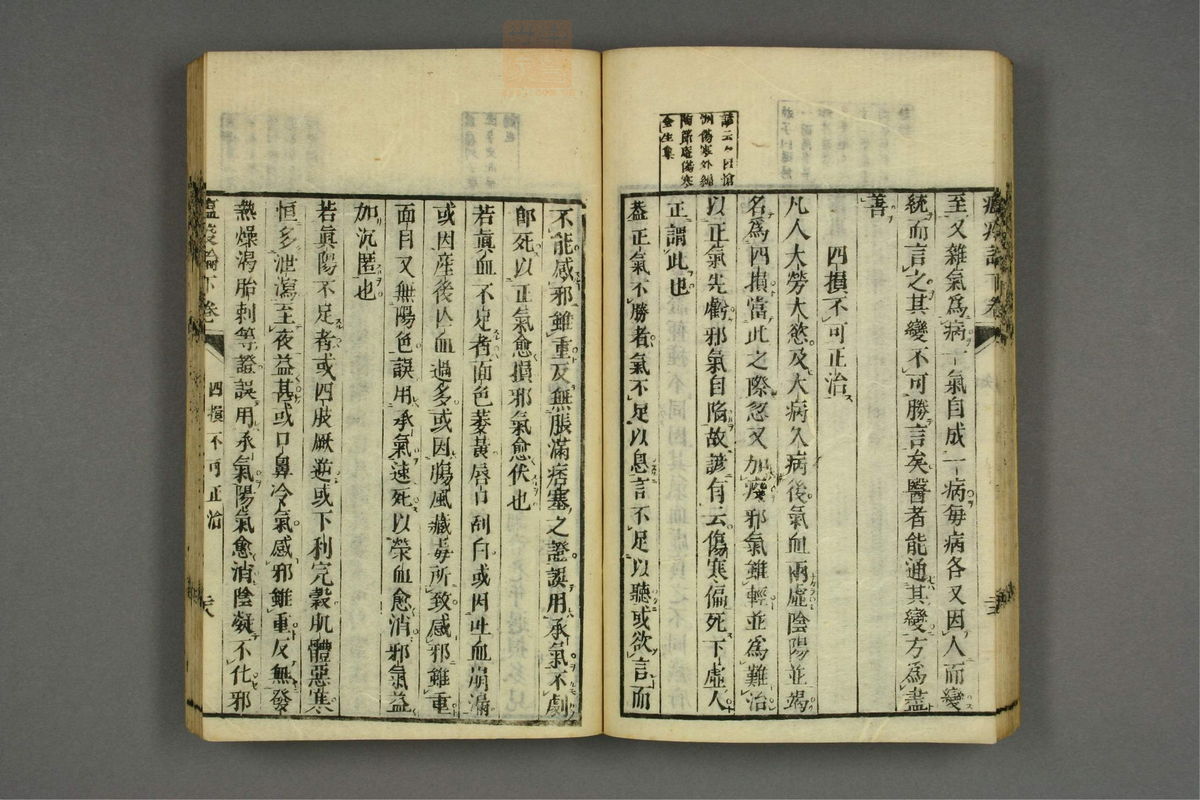 至又雜氣為病一氣自成一病每病各又因人而變
統而言之其變不可勝言矣醫者能通其變方為盡
善
四損不可正治
凡人大勞大慾及大病久病後氣血兩虛陰陽並竭
名為四損當此之際忽又加疫邪氣雖輕並為難治
以正氣先虧邪氣自陷故諺有云傷寒偏死下虛人
正謂此也
蓋正氣不勝者氣不足以息言不足以聽或欲言而
不能感邪雖重反無脹滿痞塞之證誤用承氣不劇
卽死以正氣愈損邪氣愈伏也
若眞血不足者面色萎黃唇口刮白或因吐血崩漏
或因產後亡血過多或因腸風臟毒所致感邪雖重
面目又無陽色誤用承氣速死以榮血愈消邪氣益
加沉匿也
若眞陽不足者或四肢厥逆或下利完穀肌體惡寒
恒多泄瀉至夜益甚或口鼻冷氣感邪雖重反無發
熱燥渴胎刺等證誤用承氣陽氣愈消陰凝不化邪
瘟疫論下卷
四損不可正治